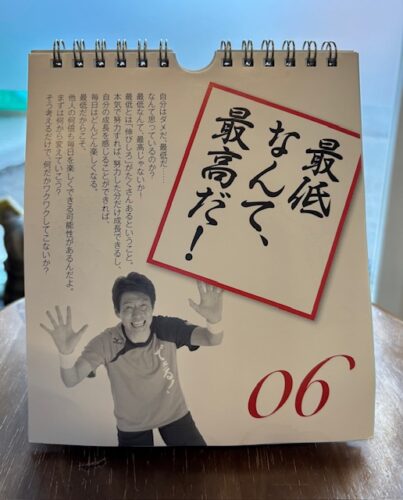 最低
なんて、
最高だ!
自分はダメだ、最低だ……
なんて思っているのか?
最低なんて、最高じゃないか!
最低とは「伸びしろ」がたくさんあるということ。
本気で努力すれば、努力した分だけ成長できるし、
自分の成長を感じることができれば、
毎日はどんどん楽しくなる。
最低だからこそ、
他人の何倍も毎日を楽しくできる可能性があるんだよ。
まずは何から変えていこう?
そう考えるだけで、何だかワクワクしてこないか?
できる!
06